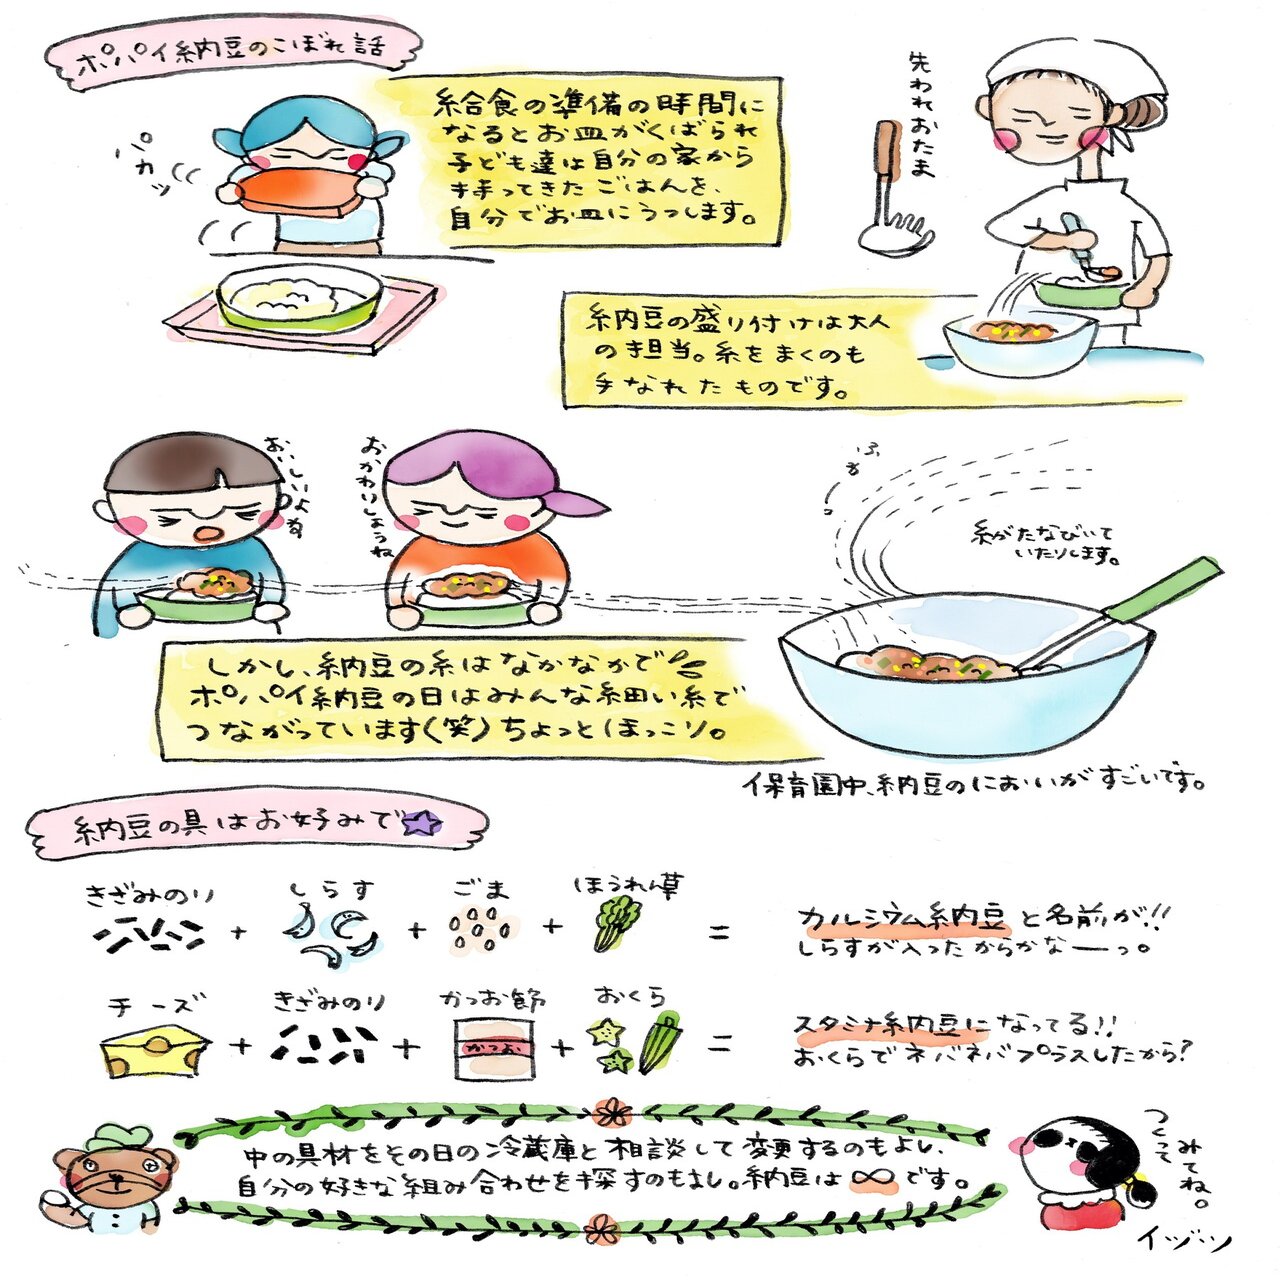 ポパイ納豆のこぼれ話
パカッ
給食の準備の時間に
なるとお皿がくばられ
子ども達は自分の家から
持ってきたごはんを、
自分でお皿にうつします。
先われおたま
納豆の盛り付けは大人
の担当。糸をまくのも
手なれたものです。
おいしいよね
おかわりしようね
ふぅ
糸がたなびいて
いたりします。
しかし、納豆の糸はなかなかで
ポパイ納豆の日はみんな細い糸で
つながっています(笑)ちょっとほっこり。
保育園中、納豆のにおいがすごいです。
納豆の具はお好みで
きざみのり + しらす + ごま + ほうれん草 =
カルシウム納豆と名前が!!
しらすが入ったからかなーっ。
チーズ + きざみのり + かつお節 + おくら =
かつお
スタミナ納豆になってる!!
おくらでネバネバプラスしたから?
中の具材をその日の冷蔵庫と相談して変更するのもよし、
自分の好きな組み合わせを探すのもよし。納豆は∞です。
つくって
みてね。
イヅツ